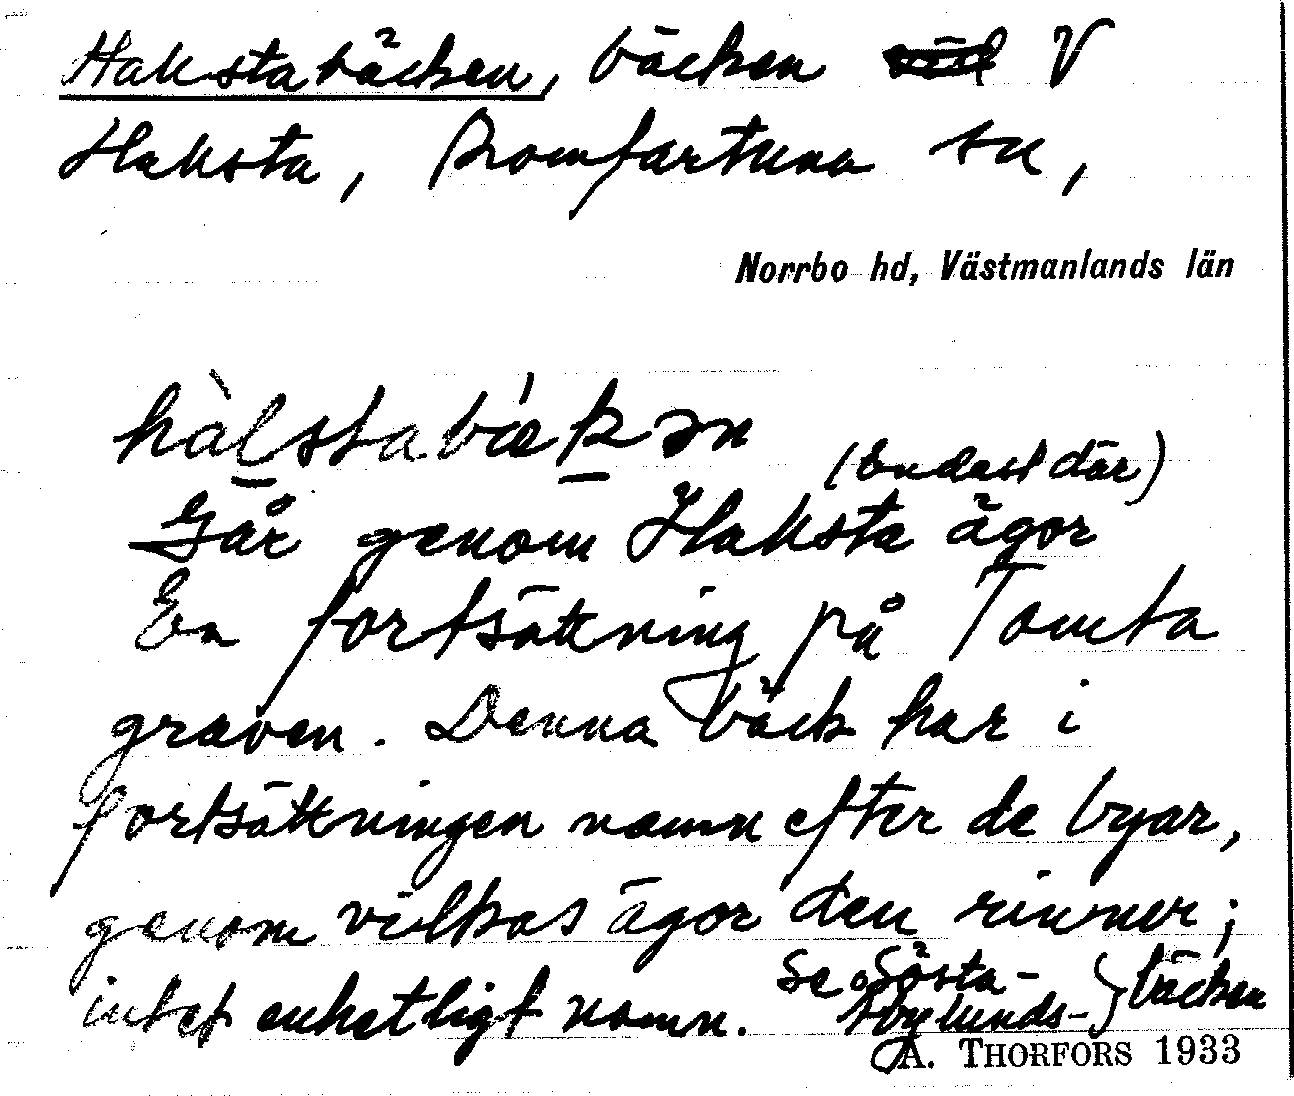 Hakstabäcken, bäcken V
Haksta, Romfartuna sn,
Norrbo hd, Västmanlands län
(Endast där)
Går genom Haksta ägor
En fortsättning på Tomta
graven. Denna bäck har i
fortsättningen namn efter de byar,
genom vilkas ägor den rinner;
intet enhetligt namn. Se Sösta-
bäcken
A. THORFORS 1933